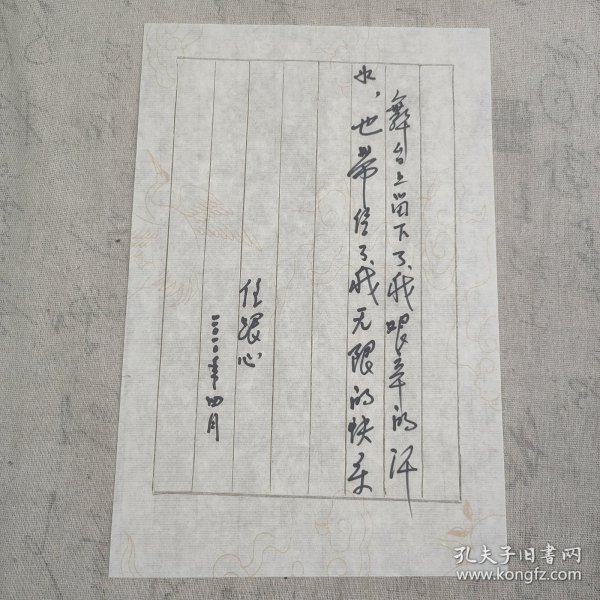 舞台上留下了我艰辛的汗
水，也带给了我无限的快乐
任跟心
二〇一〇年四月
孔夫子旧书网
www.kongfz.com